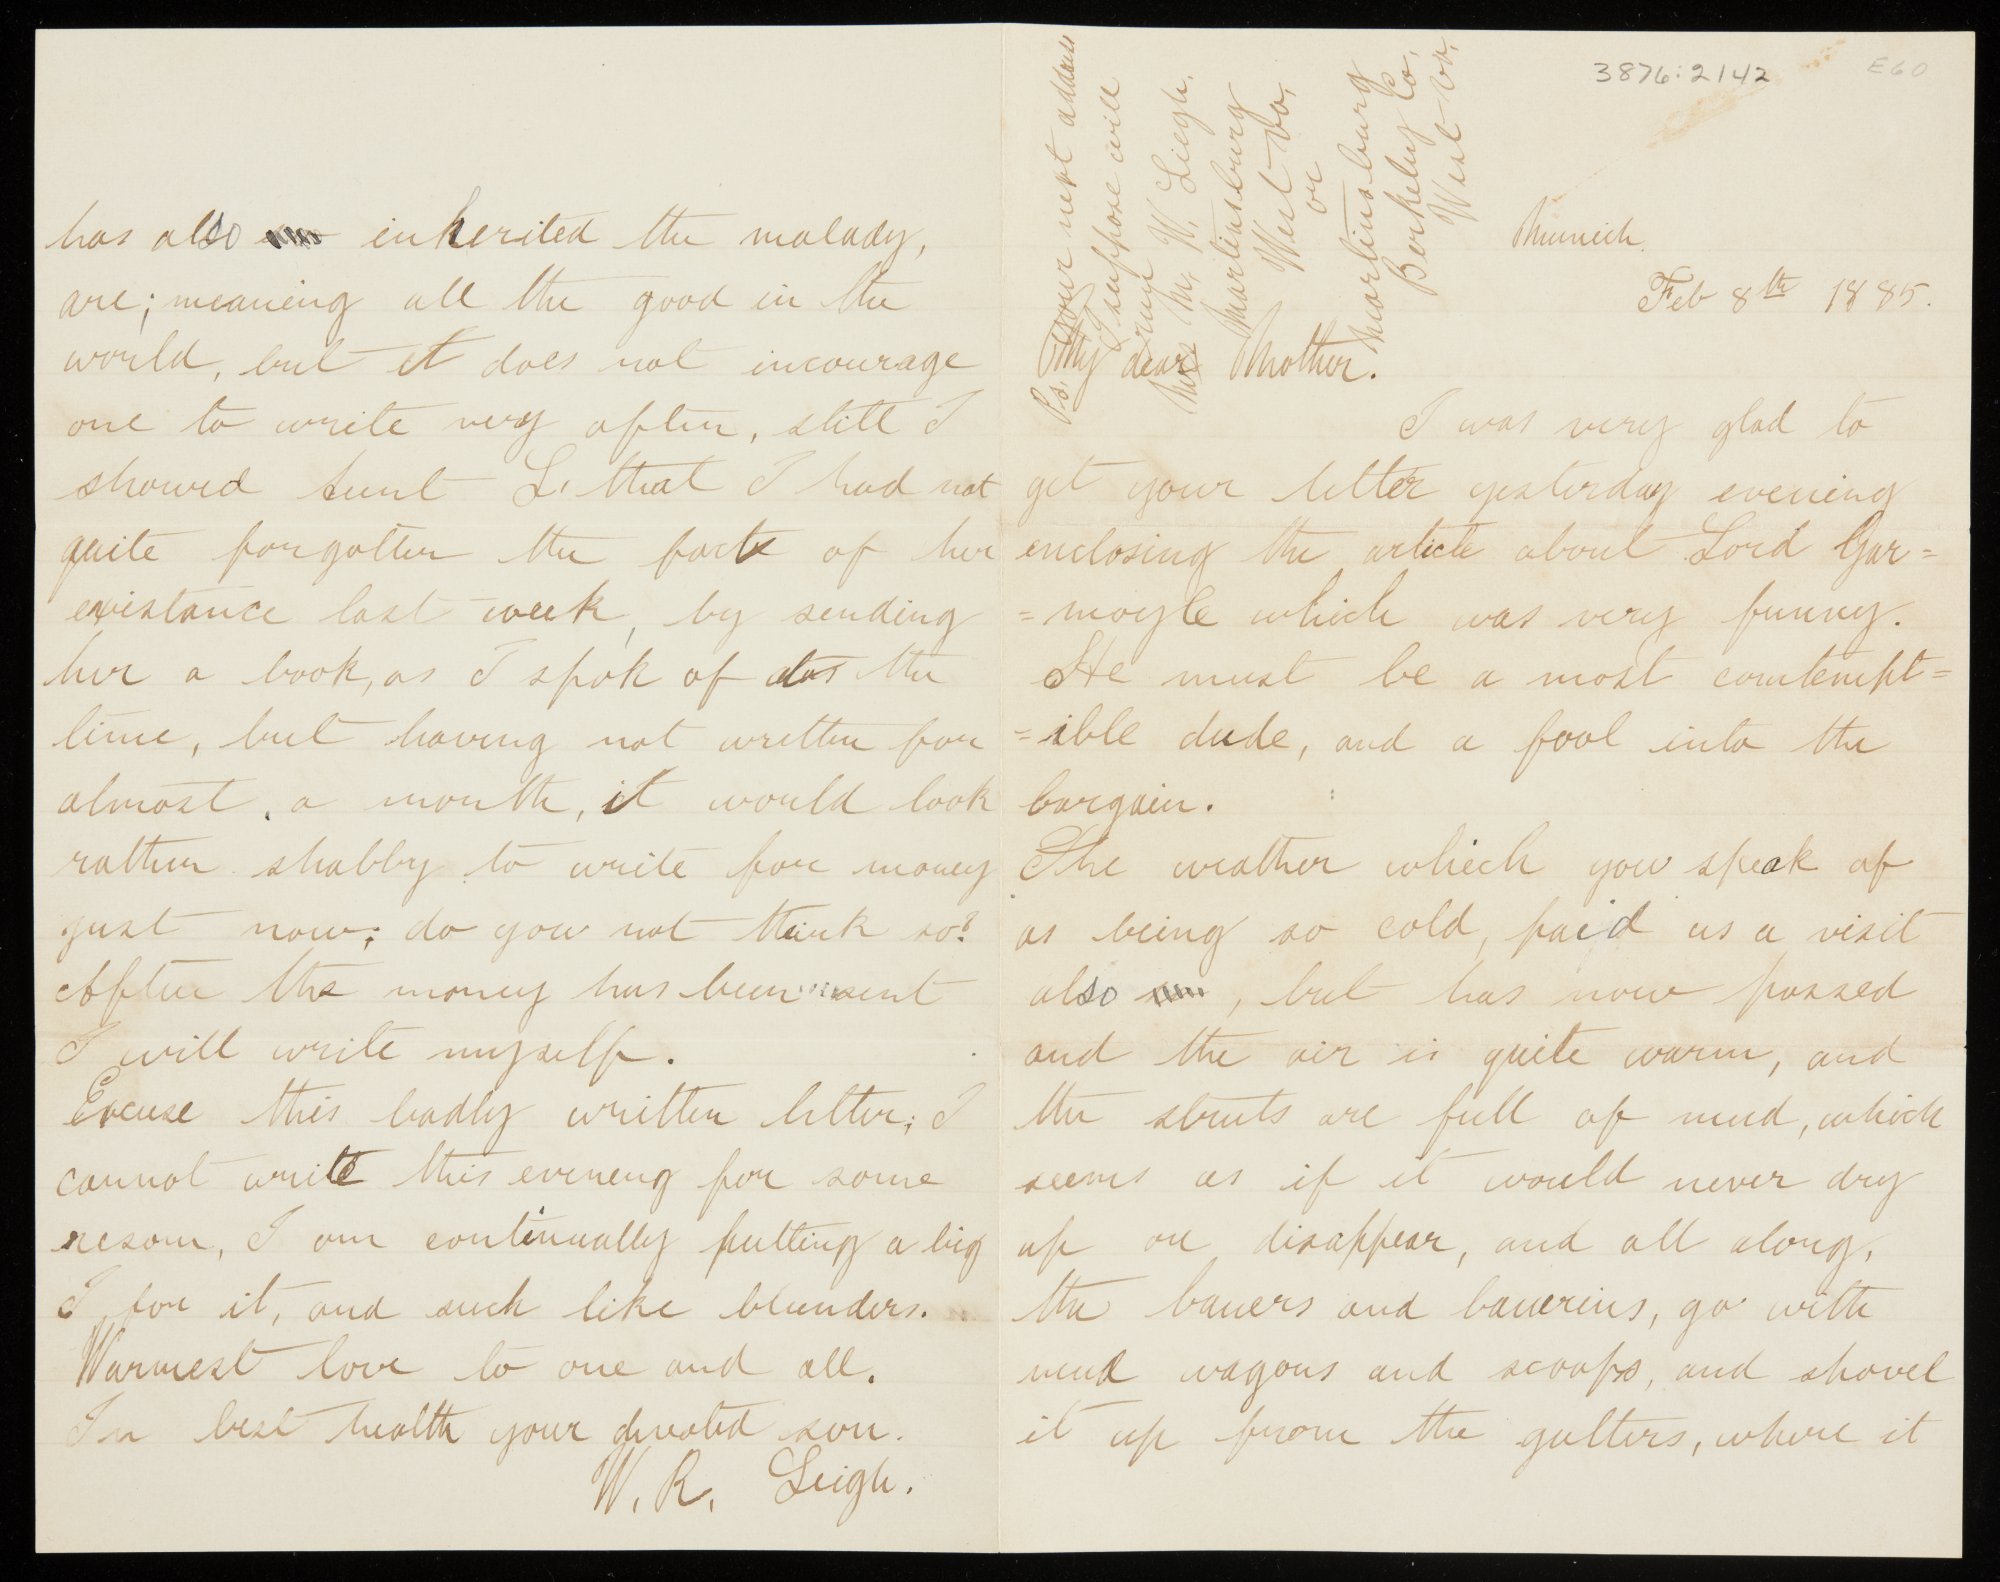 3876:2142
E60
Munich.
Feb 8th 1885.
My dear Mother.
I was very glad to
get your letter yesterday evening
enclosing the article about Lord Gar=
=moyle which was very funny.
He must be a most comtempt=
=ible dude, and a fool into the
bargain.
The weather which you speak of
as being so cold, paid us a visit
also , but has now passed
and the air is quite warm, and
the struts are full of mud, which
seems as if it would never dry
up or disappear, and all along,
the bauers and bauerins, go with
mud wagons and scoops, and shovel
it up from the gutters, where it
Ps. Your next address
I suppose will
be
Mrs M. W. Liegh.
Martinsburg
West Va,
or
Martinsburg
Berkeley Co,
West Va.
has also inherited the malady,
are; meaning all the good in the
world, but it does not incourage
one to write very often, still I
showed Aunt L. that I had not
quite forgotten the fact of her
existance last week, by sending
her a book, as I spok of at the
time, but having not written for
almost a month, it would look
rather shabby to write for money
just now; do you not think so?
After the money has been sent
I will write myself.
Excuse this badly written letter; I
cannot write this evening for some
reson, I am continually putting a big
I for it, and such like blunders.
Warmest love to one and all.
In best health your devoted son.
W. R. Leigh.